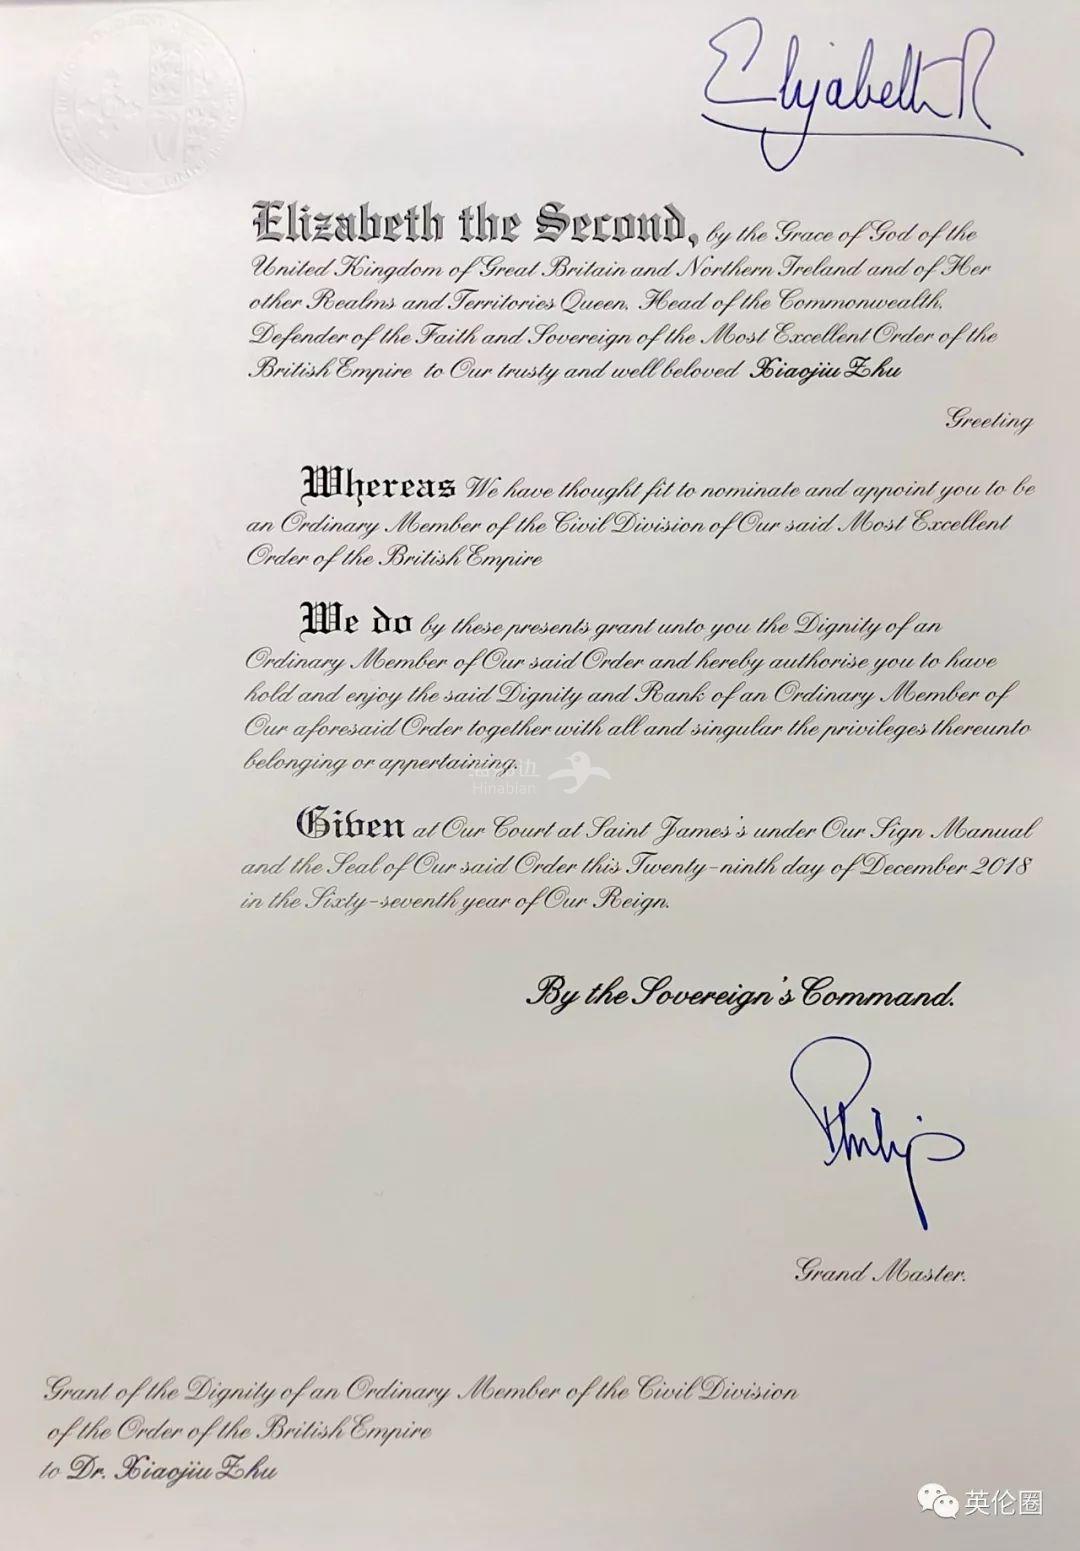 Elizabeth R
Elizabeth the Second, by the Grace of God of the
United Kingdom of Great Britain and Northern Ireland and of Her
other Realms and Territories Queen, Head of the Commonwealth,
Defender of the Faith and Sovereign of the Most Excellent Order of the
British Empire to Our trusty and well beloved Xiaojiu Zhu
Greeting
Whereas We have thought fit to nominate and appoint you to be
an Ordinary Member of the Civil Division of Our said Most Excellent
Order of the British Empire
We do by these presents grant unto you the Dignity of an
Ordinary Member of Our said Order and hereby authorise you to have
hold and enjoy the said Dignity and Rank of an Ordinary Member of
Our aforesaid Order together with all and singular the privileges thereunto
belonging or appertaining.
Hinabian
Given at Our Court at Saint James's under Our Sign Manual
and the Seal of Our said Order this Twenty-ninth day of December 2018
in the Sixty-seventh year of Our Reign.
By the Sovereign's Command.
Philip
Grand Master.
Grant of the Dignity of an Ordinary Member of the Civil Division
of the Order of the British Empire
to Dr. Xiaojiu Zhu
英伦圈